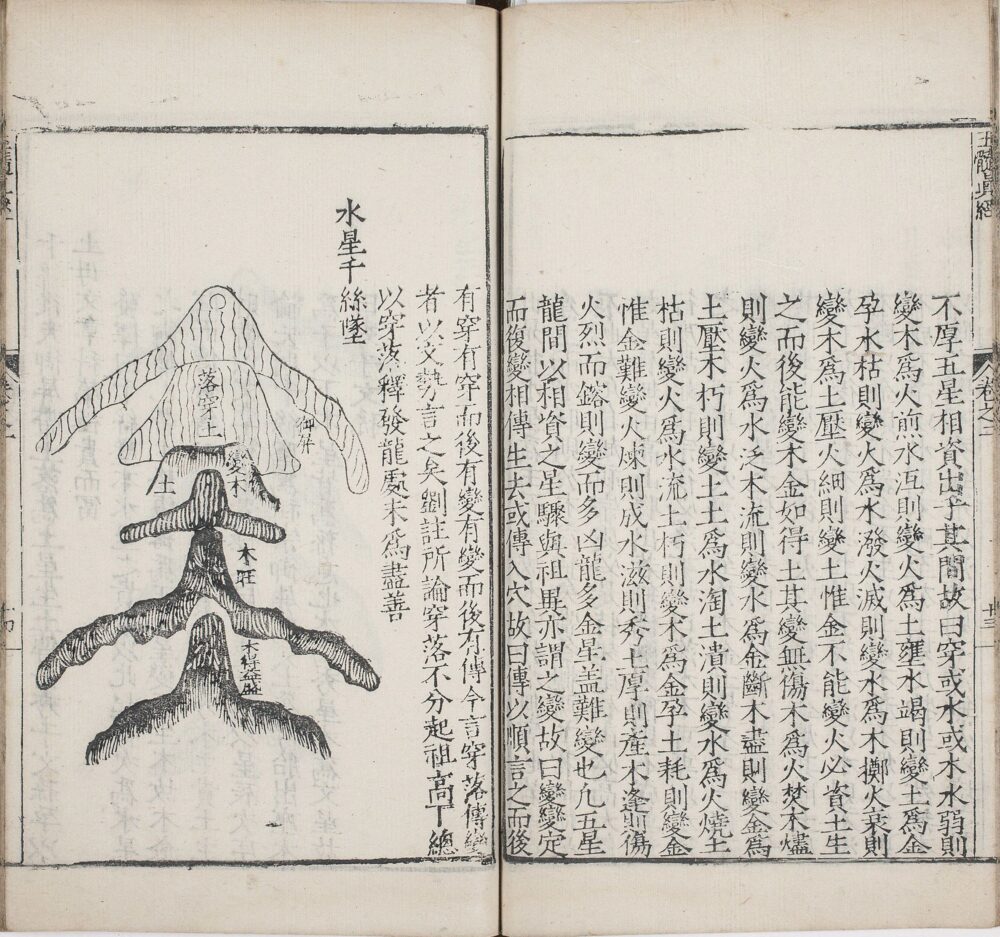 玉髓真經
卷之二
不厚五星相資出乎其間故曰穿或水或木水弱則
變木為火煎水沍則變火為土壅水竭則變土為金
孕水枯則變火為水潑火滅則變水為木擲火衰則
變木為土壓火細則變土惟金不能變火必資土生
之而後能變木金如得土其變無傷木為火焚木燼
則變火為水泛木流則變水為金斷木盡則變金為
土壓木朽則變土土為水淘土潰則變水為火燒土
枯則變火為水流土朽則變木為金孕土耗則變金
惟金難變火煉則成水滋則秀土厚則產木逢則傷
火烈而鎔則變而多凶龍多金星蓋難變也凡五星
龍間以相資之星驟與祖異亦謂之變故曰變變定
而復變相傳生去或傳入穴故曰傳以順言之而後
有穿有穿而後有變有變而後有傳今言穿落傳變
者以文勢言之矣劉註所論穿落不分起祖高下總
以穿落釋發龍處未為盡善
水星千絲墜
落穿土
御屏
變木
土
木旺